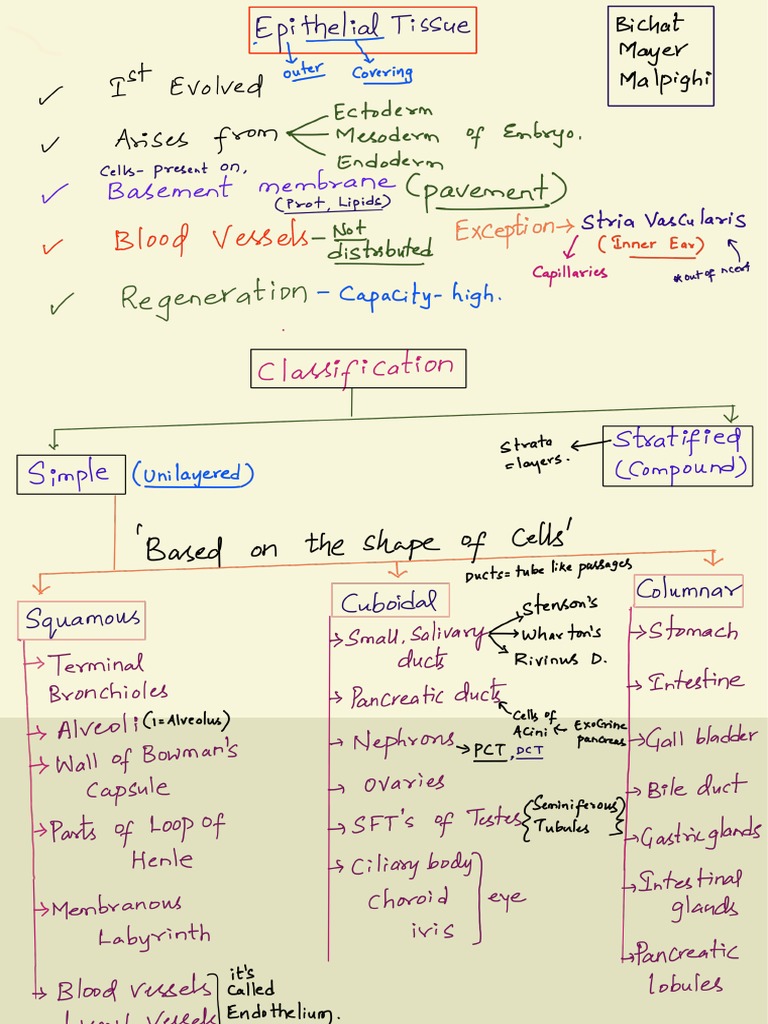 Epithelial Tissue
outer Covering
Bichat
Mayer
Malpighi
✓ Ist Evolved
✓ Arises from Ectoderm
Mesoderm of Embryo.
Endoderm
Cells- present on,
✓ Basement membrane (pavement)
(Prot, Lipids)
✓ Blood Vessels - Not distributed
Exception → Stria Vascularis
(Inner Ear)
Capillaries
*out of ncert
✓ Regeneration - Capacity- high.
Classification
Simple (Unilayered)
Strata = layers.
Stratified
(Compound)
'Based on the shape of Cells'
Ducts= tube like passages
Squamous
→ Terminal
Bronchioles
→ Alveoli (1=Alveolus)
→ Wall of Bowman's
Capsule
→ Parts of Loop of
Henle
→ Membranous
Labyrinth
→ Blood vessels
Lymph vessels
it's
Called
Endothelium.
Cuboidal
→ Small, Salivary
ducts
Stenson's
Wharton's
Rivinus D.
→ Pancreatic ducts
Cells of
Acini ← Exocrine
pancreas
→ Nephrons → PCT, DCT
→ ovaries
→ SFT's of Testes {Seminiferous
Tubules}
→ Ciliary body
Choroid
iris
eye
Columnar
→ Stomach
→ Intestine
→ Gall bladder
→ Bile duct
→ Gastric glands
→ Intestinal
glands
→ Pancreatic
lobules